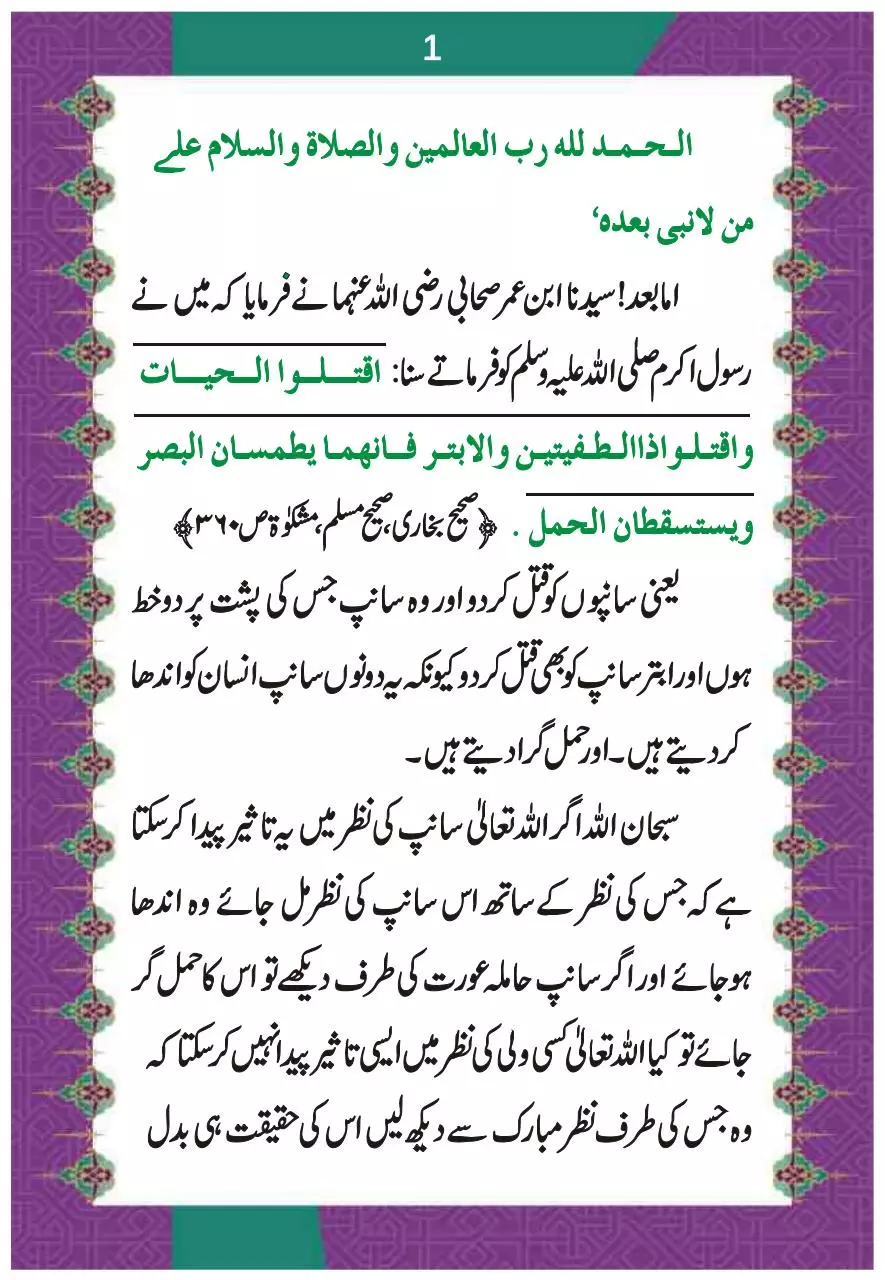 1
الـحـمـد لله رب العالمين والصلاة والسلام علے
من لانبی بعدہ‘
امابعد! سیدنا ابن عمر صحابی رضی اللہ عنہما نے فرمایا کہ میں نے
رسول اکرم صلی اللہ علیہ وسلم کو فرماتے سنا: اقتـلـوا الـحیـات
واقتلـوا ذاالـطـفیتیـن والابتـر فـانھمـا یطمسـان البصر
ویستسقطان الحمل . ﴿صحیح بخاری، صحیح مسلم، مشکوٰۃ ص ۳۶۰﴾
یعنی سانپوں کو قتل کردو اور وہ سانپ جس کی پشت پر دو خط
ہوں اور ابتر سانپ کو بھی قتل کردو کیونکہ یہ دونوں سانپ انسان کو اندھا
کردیتے ہیں۔ اور حمل گرا دیتے ہیں۔
سبحان اللہ اگر اللہ تعالیٰ سانپ کی نظر میں یہ تاثیر پیدا کرسکتا
ہے کہ جس کی نظر کے ساتھ اس سانپ کی نظر مل جائے وہ اندھا
ہوجائے اور اگر سانپ حاملہ عورت کی طرف دیکھے تو اس کا حمل گر
جائے تو کیا اللہ تعالیٰ کسی ولی کی نظر میں ایسی تاثیر پیدا نہیں کرسکتا کہ
وہ جس کی طرف نظر مبارک سے دیکھ لیں اس کی حقیقت ہی بدل